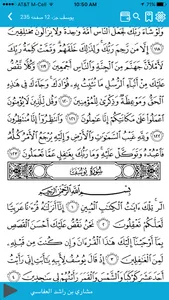 AT&T M-Cell
10:50 AM
71%
يوسف جزء 12 صفحة 235
وَلَوْ شَاءَ رَبُّكَ لَجَعَلَ النَّاسَ أُمَّةً وَاحِدَةً وَلَا يَزَالُونَ مُخْتَلِفِينَ
١١٨ إِلَّا مَن رَّحِمَ رَبُّكَ وَلِذَٰلِكَ خَلَقَهُمْ وَتَمَّتْ كَلِمَةُ رَبِّكَ
لَأَمْلَأَنَّ جَهَنَّمَ مِنَ الْجِنَّةِ وَالنَّاسِ أَجْمَعِينَ ١١٩ وَكُلًّا
نَّقُصُّ عَلَيْكَ مِنْ أَنبَاءِ الرُّسُلِ مَا نُثَبِّتُ بِهِ فُؤَادَكَ وَجَاءَكَ فِي هَٰذِهِ
الْحَقُّ وَمَوْعِظَةٌ وَذِكْرَىٰ لِلْمُؤْمِنِينَ ١٢٠ وَقُل لِّلَّذِينَ لَا يُؤْمِنُونَ
اعْمَلُوا عَلَىٰ مَكَانَتِكُمْ إِنَّا عَامِلُونَ ١٢١ وَانتَظِرُوا إِنَّا مُنتَظِرُونَ
١٢٢ وَلِلَّهِ غَيْبُ السَّمَاوَاتِ وَالْأَرْضِ وَإِلَيْهِ يُرْجَعُ الْأَمْرُ كُلُّهُ
فَاعْبُدْهُ وَتَوَكَّلْ عَلَيْهِ وَمَا رَبُّكَ بِغَافِلٍ عَمَّا تَعْمَلُونَ ١٢٣
سُورَةُ يُوسُفَ
بِسْمِ اللَّهِ الرَّحْمَٰنِ الرَّحِيمِ
الر تِلْكَ آيَاتُ الْكِتَابِ الْمُبِينِ ١ إِنَّا أَنزَلْنَاهُ قُرْآنًا عَرَبِيًّا
لَّعَلَّكُمْ تَعْقِلُونَ ٢ نَحْنُ نَقُصُّ عَلَيْكَ أَحْسَنَ الْقَصَصِ
بِمَا أَوْحَيْنَا إِلَيْكَ هَٰذَا الْقُرْآنَ وَإِن كُنتَ مِن قَبْلِهِ لَمِنَ
الْغَافِلِينَ ٣ إِذْ قَالَ يُوسُفُ لِأَبِيهِ يَا أَبَتِ إِنِّي رَأَيْتُ
أَحَدَ عَشَرَ كَوْكَبًا وَالشَّمْسَ وَالْقَمَرَ رَأَيْتُهُمْ لِي سَاجِدِينَ ٤
مشاري بن راشد العفاسي